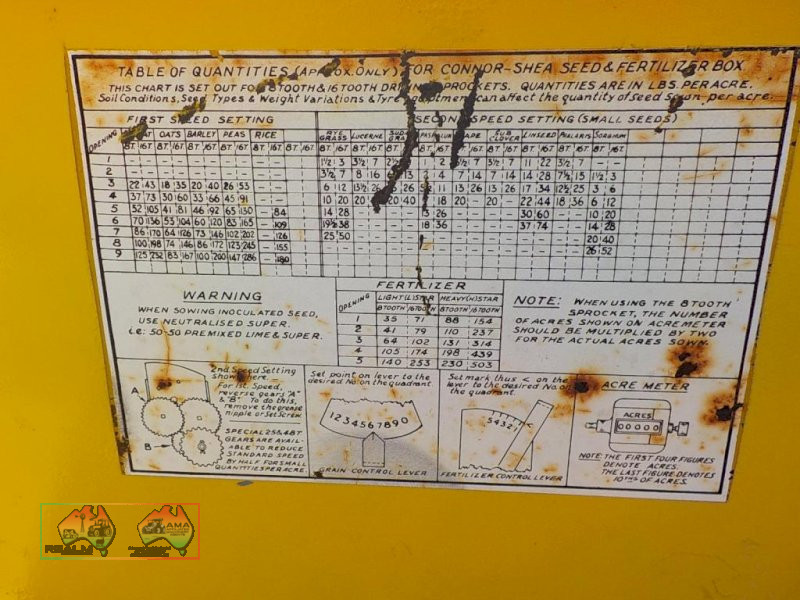 TABLE OF QUANTITIES (APPROX. ONLY) FOR CONNOR-SHEA SEED & FERTILIZER BOX
THIS CHART IS SET OUT FOR 8 TOOTH & 16 TOOTH SPROCKETS. QUANTITIES ARE IN LBS. PER ACRE.
Soil Conditions, Seed Types & Weight Variations & Tyre can affect the quantity of seed sown per acre.
FIRST SPEED SETTING SECOND SPEED SETTING (SMALL SEEDS)
OPENING OATS BARLEY PEAS RICE RYE GRASS LUCERNE SUB CLOVER LINSEED PHALARIS SORGHUM
8T. 16T. 8T. 16T. 8T. 16T. 8T. 16T. 8T. 16T.
1 - - - - - - - - 1½ 3 3½ 7 11 22 3½ 7 - -
2 - - - - - - - - 3½ 7 8 16 7 14 7 14 14 28 7½ 15 1½ 3
3 22 43 18 35 20 40 26 53 6 12 13½ 26 13 26 13 26 17 34 12½ 25 3 6
4 37 73 30 60 33 66 45 91 10 20 20 20 40 18 20 - 20 - 22 44 18 36 6 12
5 52 105 41 81 46 92 65 130 - 84 14 28 13 26 30 60 10 20
6 70 136 53 104 60 120 83 165 - 109 19½ 38 18 36 37 74 14 28
7 86 170 64 126 73 146 102 202 - 126 25 50 20 40
8 100 198 74 146 86 172 123 245 - 155 26 52
9 125 252 83 167 100 200 147 286 - 180
FERTILIZER
OPENING LIGHT (L) STAR HEAVY (H) STAR
8 TOOTH 16 TOOTH 8 TOOTH 16 TOOTH
1 35 71 88 154
2 41 79 110 237
3 64 102 131 314
4 105 174 198 439
5 140 253 230 503
WARNING
WHEN SOWING INOCULATED SEED,
USE NEUTRALISED SUPER.
i.e: 50-50 PREMIXED LIME & SUPER.
NOTE: WHEN USING THE 8 TOOTH
SPROCKET, THE NUMBER
OF ACRES SHOWN ON ACREMETER
SHOULD BE MULTIPLIED BY TWO
FOR THE ACTUAL ACRES SOWN.
2nd. Speed Setting
shown here.
For 1st. Speed,
reverse gears "A"
& "B" To do this,
remove the grease
nipple or Set Screw.
SPECIAL 25 & 48T
GEARS ARE AVAIL-
ABLE TO REDUCE
STANDARD SPEED
BY HALF FOR SMALL
QUANTITIES PER ACRE.
A
B
Set point on lever to the
desired No. on the quadrant.
1 2 3 4 5 6 7 8 9 0
GRAIN CONTROL LEVER
Set mark thus < on the
lever to the desired No. on
the quadrant.
5 4 3 2 1
FERTILIZER CONTROL LEVER
ACRE METER
ACRES
0 0 0 0 0
NOTE: THE FIRST FOUR FIGURES
DENOTE ACRES.
THE LAST FIGURE DENOTES
10THS OF ACRES.
REALM
AMA